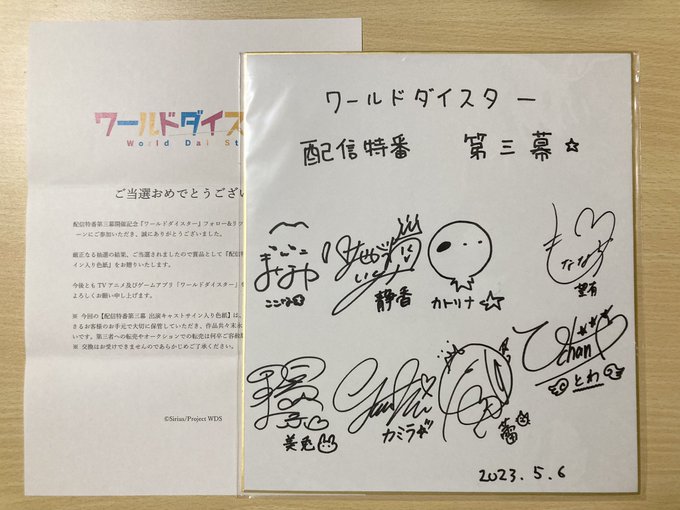 ワールドダイス
World Dai St
ご当選おめでとうござい
配信特番第三幕開催記念「ワールドダイスター」フォロー&リ
ーンにご参加いただき、誠にありがとうございました。
厳正なる抽選の結果、ご当選されましたので賞品として『配信
イン入り色紙』をお贈りいたします。
今後とも TV アニメ及びゲームアプリ「ワールドダイスター」を
よろしくお願い申し上げます。
※ 今回の【配信特番第三幕 出演キャストサイン入り色紙】は
さるお客様のお手元で大切に保管していただき、作品共々末永
いです。第三者への転売やオークションでの転売は何卒ご容赦
※ 交換はお受けできませんのであらかじめご了承ください。
©Sirius/Project WDS
ワールドダイスター
配信特番 第三幕☆
ここな
静香
カトリナ
望有
美兎
カミラ
chan
とわ
2023.5.6